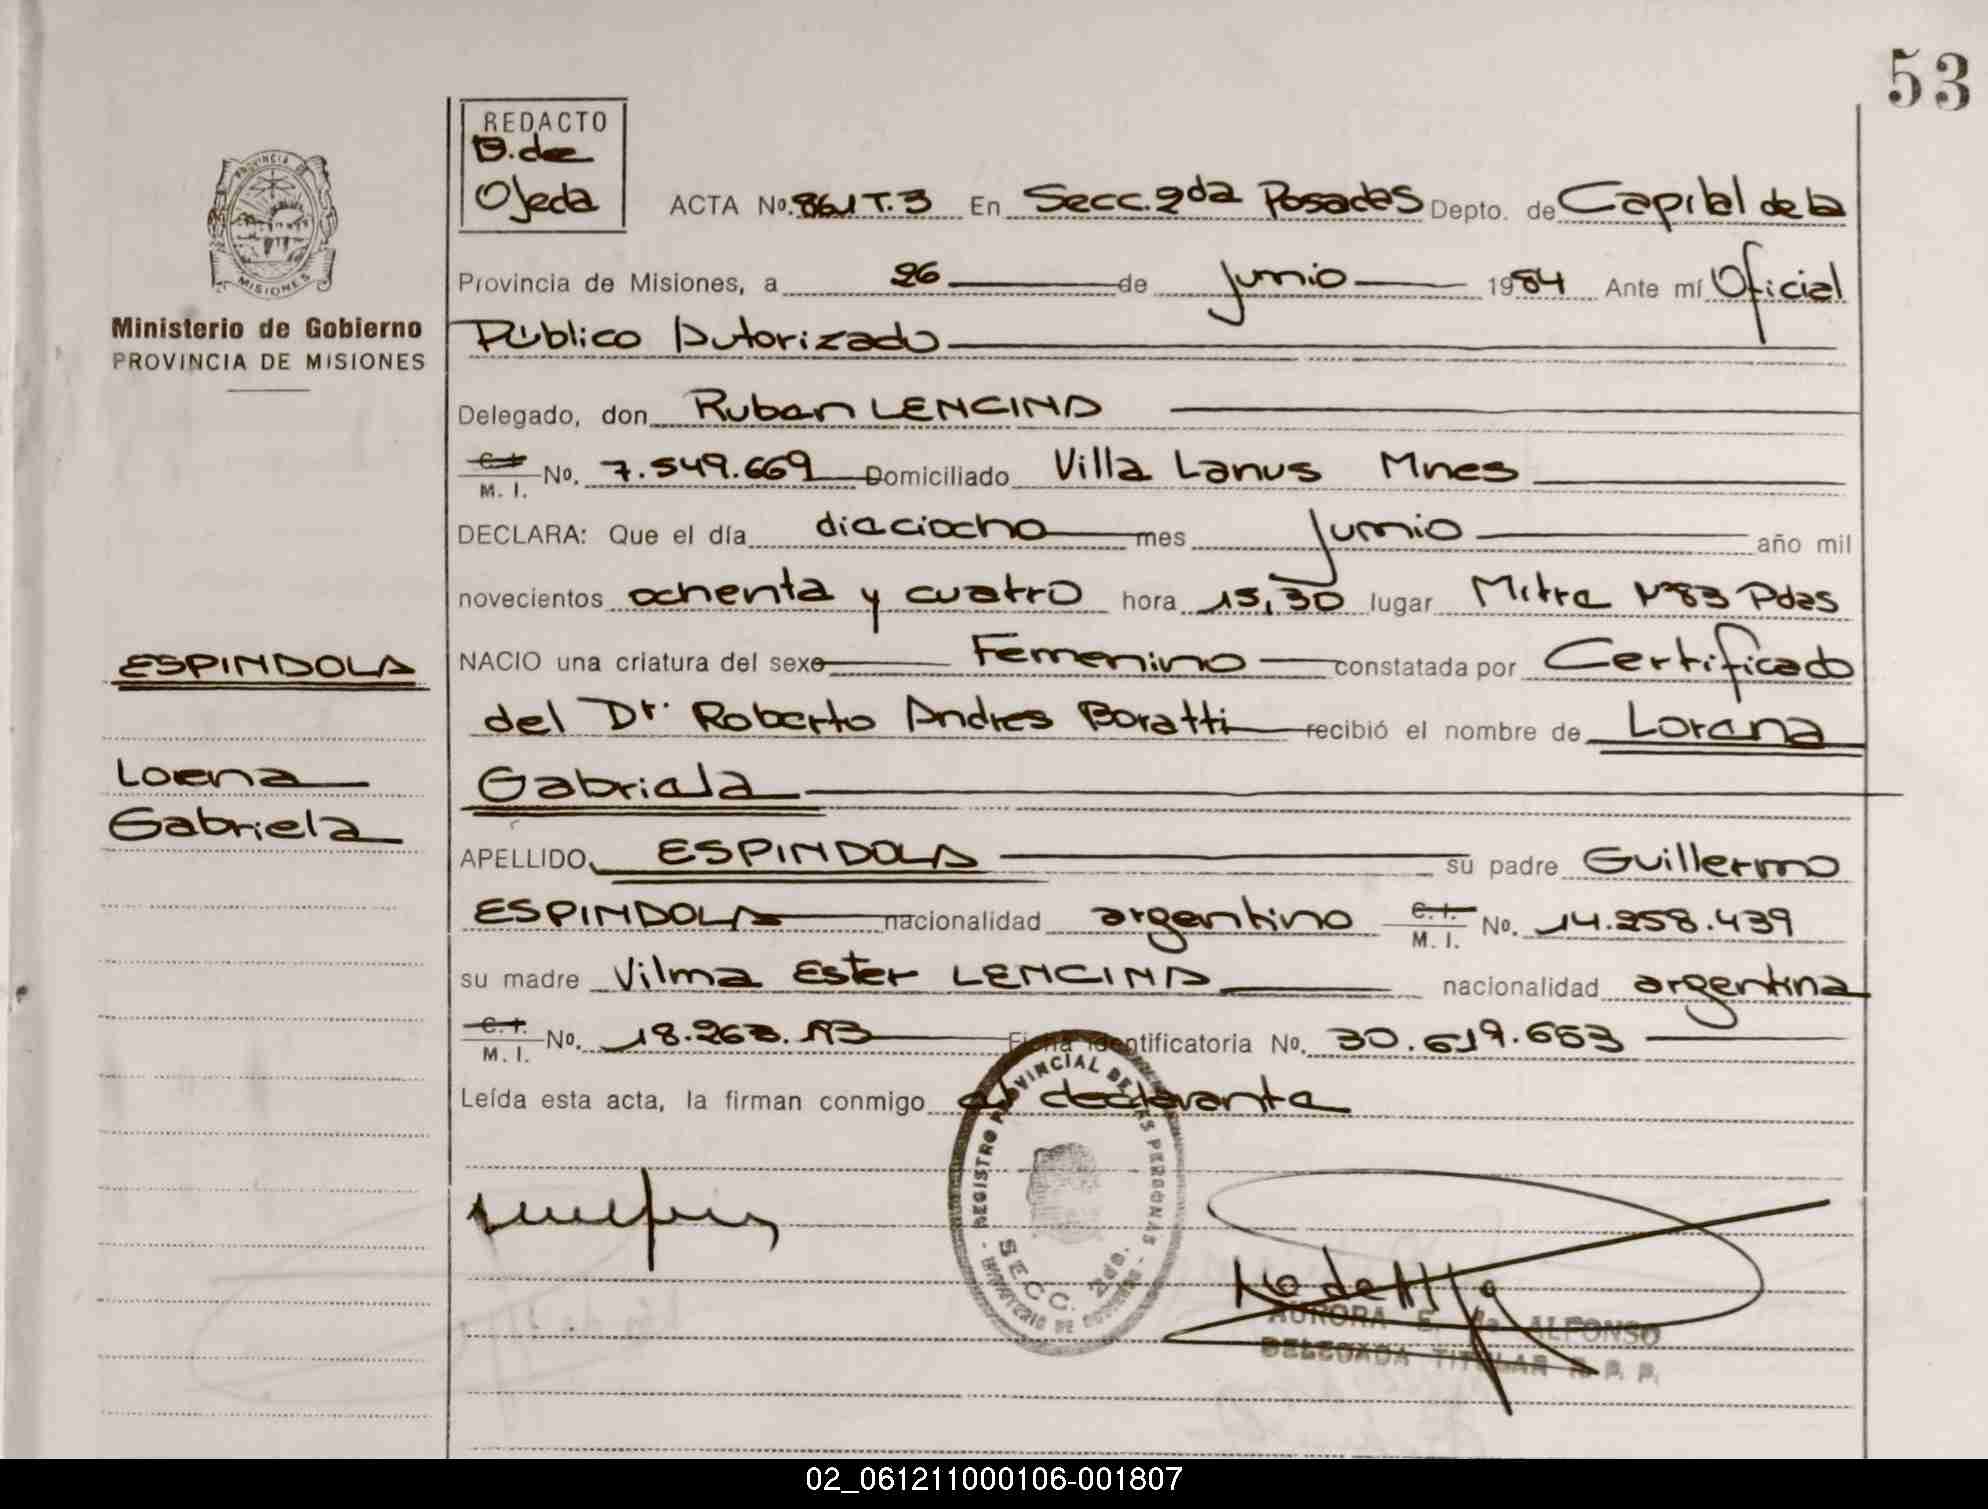 53
REDACTO
B. de
Ojeda
ACTA No. 861 T. 3 En Secc. 2da Posadas Depto. de Capital de la
PROVINCIA DE
MISIONES
Provincia de Misiones, a 26 de Junio 1984 Ante mí Oficial
Ministerio de Gobierno
PROVINCIA DE MISIONES
Público Autorizado
Delegado, don Ruben LENCINA
C. I.
M. I. No. 7.549.669 Domiciliado Villa Lanus Mnes
DECLARA: Que el día dieciocho mes Junio año mil
novecientos ochenta y cuatro hora 15,30 lugar Mitre Nº83 Pdas
ESPINDOLA
NACIO una criatura del sexo Femenino constatada por Certificado
del Dr. Roberto Andres Boratti recibió el nombre de Lorena
Lorena
Gabriela
Gabriela
APELLIDO ESPINDOLA su padre Guillermo
ESPINDOLA nacionalidad argentino C. I. M. I. No. 14.258.439
su madre Vilma Ester LENCINA nacionalidad argentina
C. I.
M. I. No. Ficha Identificatoria No. 30.619.653
Leída esta acta, la firman conmigo el declarante
REGISTRO PROVINCIAL DE LAS PERSONAS
SECC. 2da.
MINISTERIO DE GOBIERNO
AURORA E. de ALFONSO
DELEGADA TITULAR R. P. P.
02_061211000106-001807